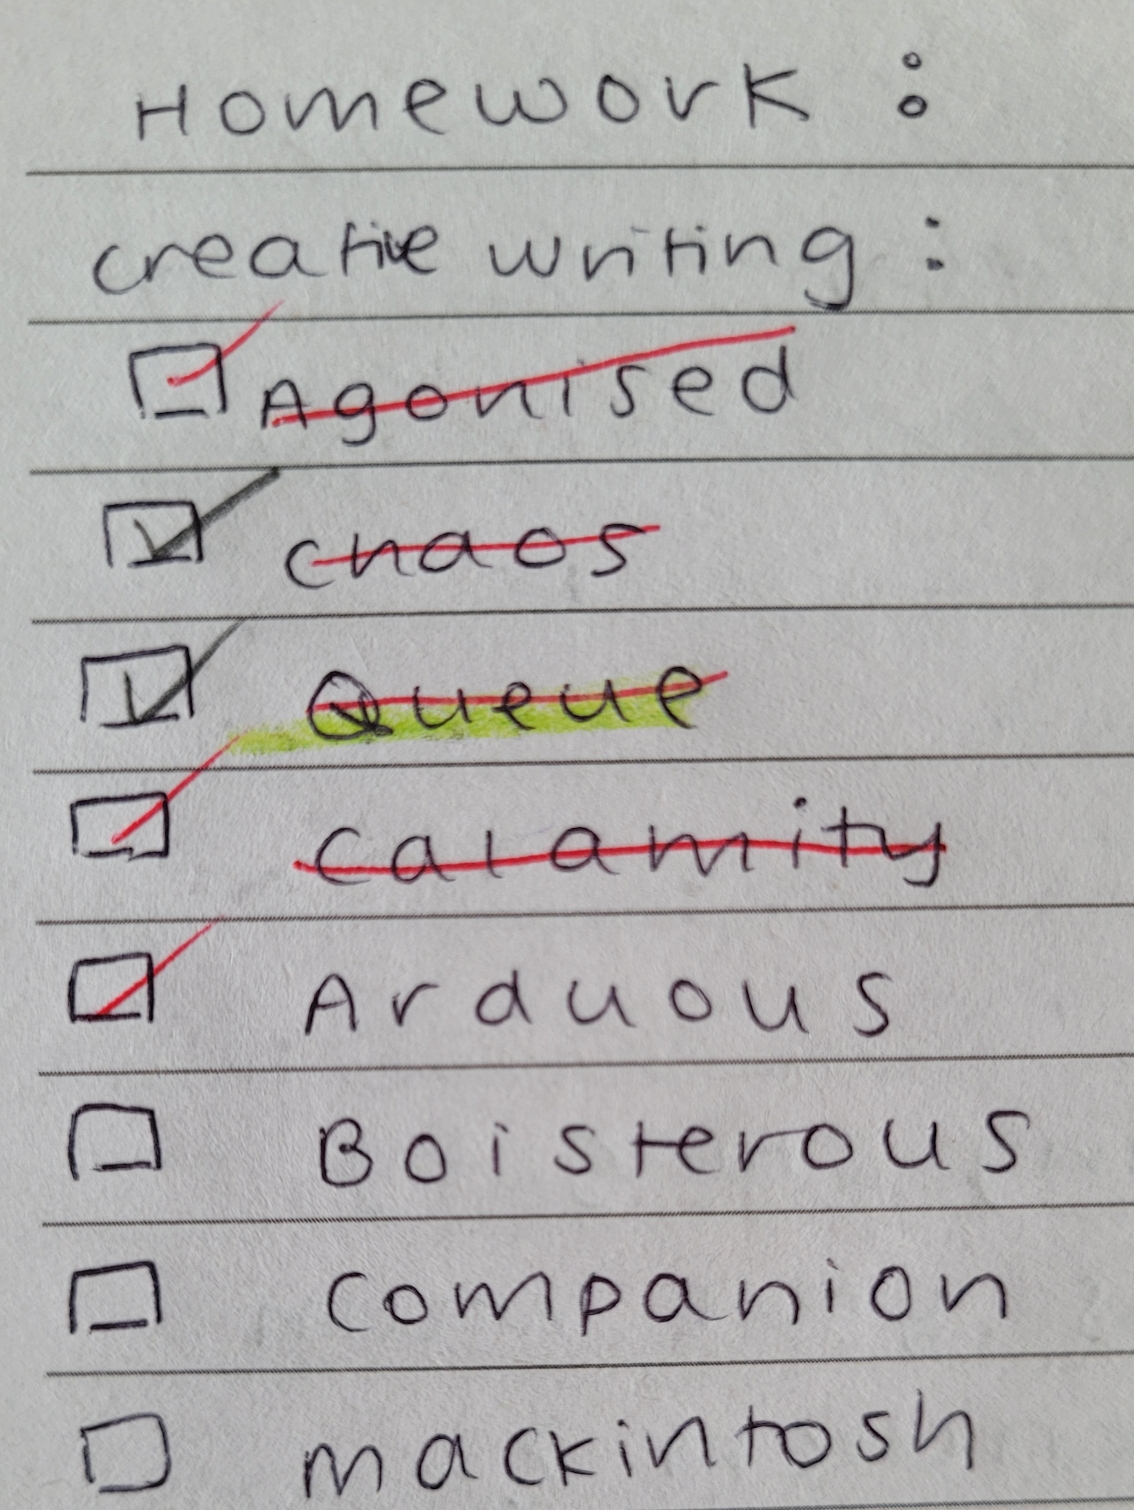 Homework :
creative writing :
Agonised
chaos
Queue
calamity
Arduous
Boisterous
companion
mackintosh